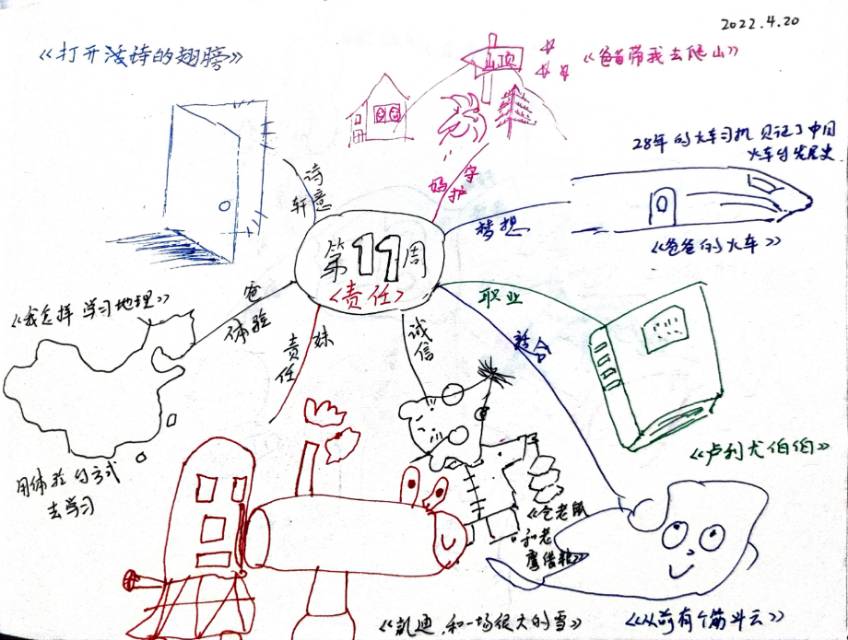 2022.4.20
《打开活诗的翅膀》
山顶
《爸爸带我去爬山》
28年的火车司机 见证了中国
火车的发展史
《爸爸的火车》
诗意
轩
妈
守护
梦想
第11周
<责任>
职业
《我怎样学习地理》
爸
体验
责任
妹
诚信
用体验的方式
去学习
《卢利尤伯伯》
《仓老鼠
和老
鹰借粮》
《凯迪和一场很大的雪》
《从前有个筋斗云》